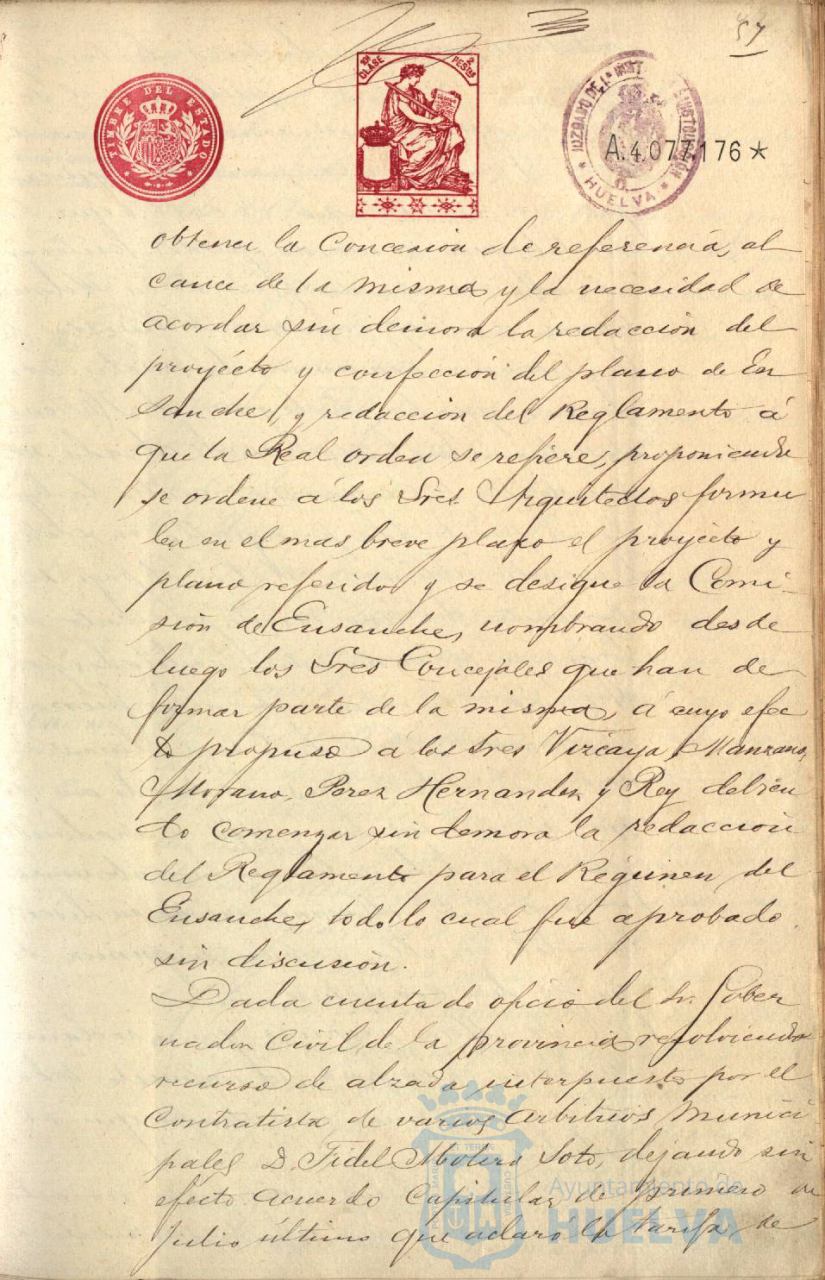 57
TIMBRE DEL ESTADO
10ª CLASE 2 PESETAS
JUZGADO DE 1ª INST
HUELVA
A.4.077.176*
obtener la Concesion de referencia, al
cance de la misma y la necesidad de
acordar sin demora la redacción del
proyécto y confección del plano de En
sanche, y redaccion del Reglamento á
que la Real orden se refiere, proponiendo
se ordene á los Sres. Arquitectos formu
len en el mas breve plazo el proyécto y
plano referido y se designe la Comi-
sión de Ensanche, nombrando desde
luego los Sres Concejales que han de
formar parte de la misma, á cuyo efec
to propuso á los Sres Vizcaya, Manzano,
Morano, Perez Hernandez y Rey debien
do comenzar sin demora la redacción
del Reglamento para el Régimen del
Ensanche, todo lo cual fue aprobado
sin discusión.
Dada cuenta de oficio del Sr. Gober
nador Civil de la provincia resolviendo
recurso de alzada interpuesto por el
Contratista de varios arbitrios Munici
pales D. Fidel Molero Soto, dejando sin
efecto acuerdo Capitular de primero de
Julio último que aclaro la tarifa de
Ayuntamiento de
HUELVA